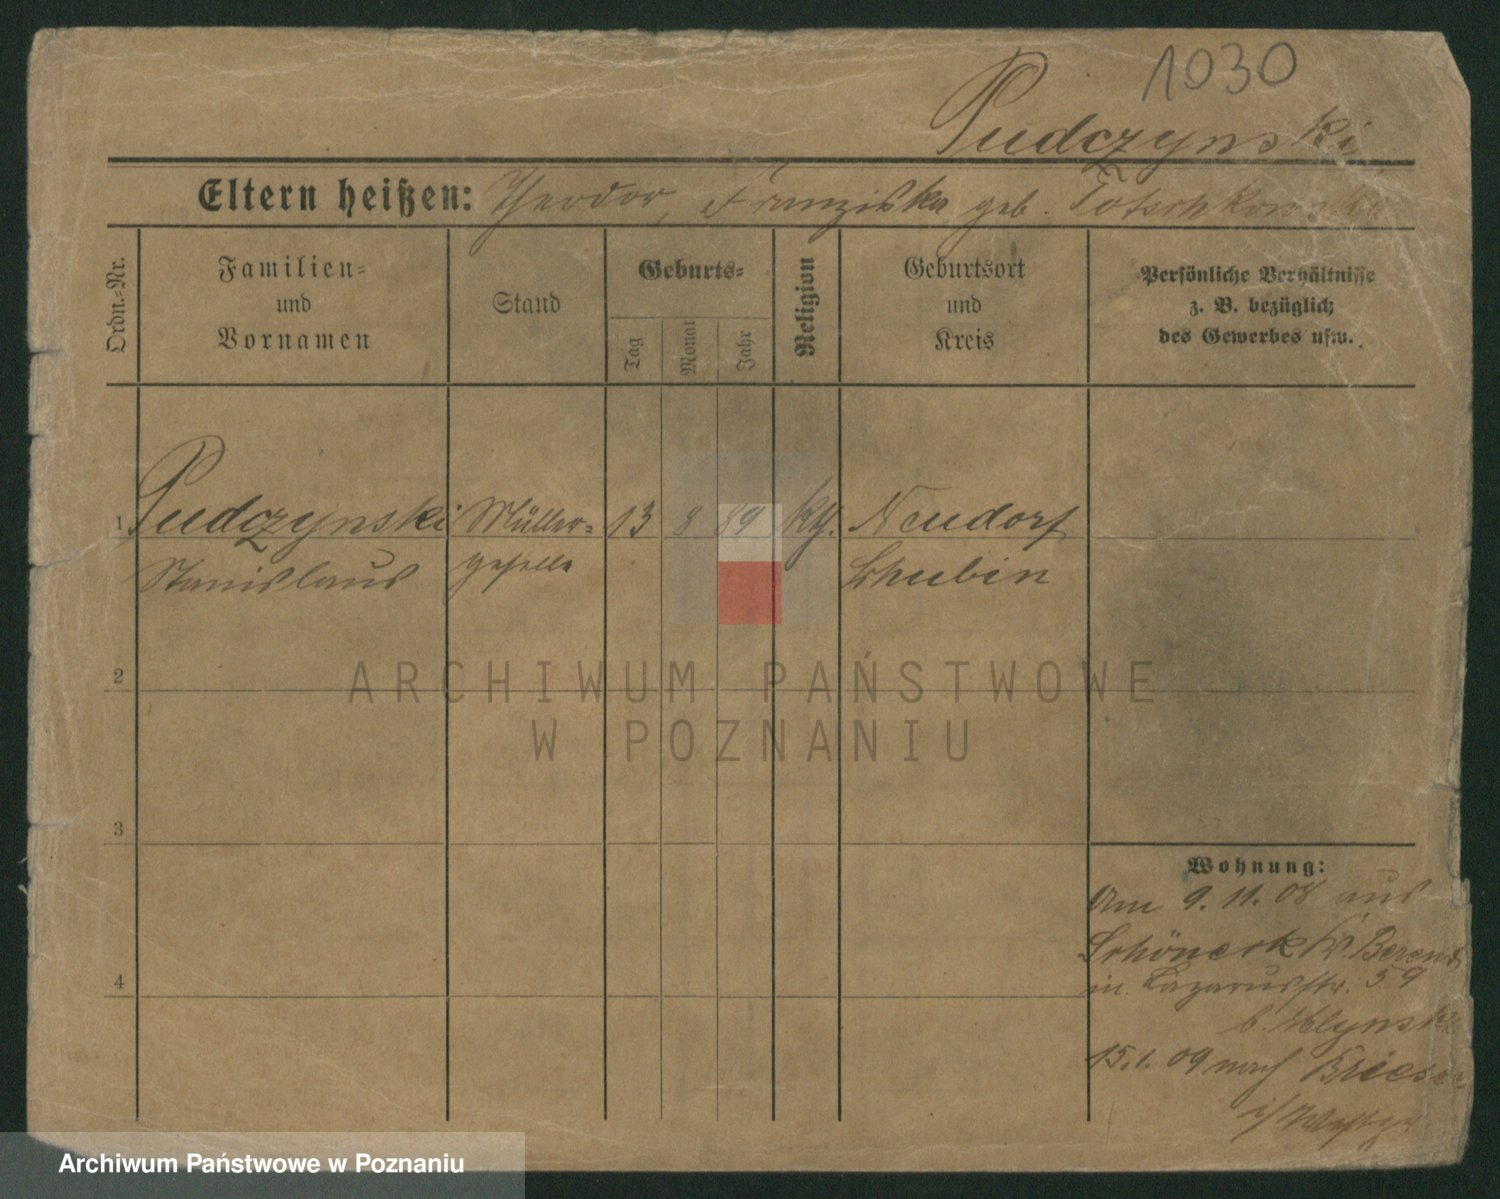 1030
Pudczynski
Eltern heißen: Theodor, Franziska geb.
Ordn.-Nr.
Familien-
und
Vornamen
Stand
Geburts-
Tag
Monat
Jahr
Religion
Geburtsort
und
Kreis
Persönliche Verhältnisse
z. B. bezüglich
des Gewerbes usw.
1 Pudczynski Müller- 13 8 89 kth. Neudorf
Stanislaus geselle Schubin
2
ARCHIWUM PAŃSTWOWE
W POZNANIU
3
Wohnung:
Am 9. 11. 08 aus
Schöneck Kr. Berent
4
in Lazarusstr. 59
b.
15.1.09 nach Briesen
i/Westpr.
Archiwum Państwowe w Poznaniu